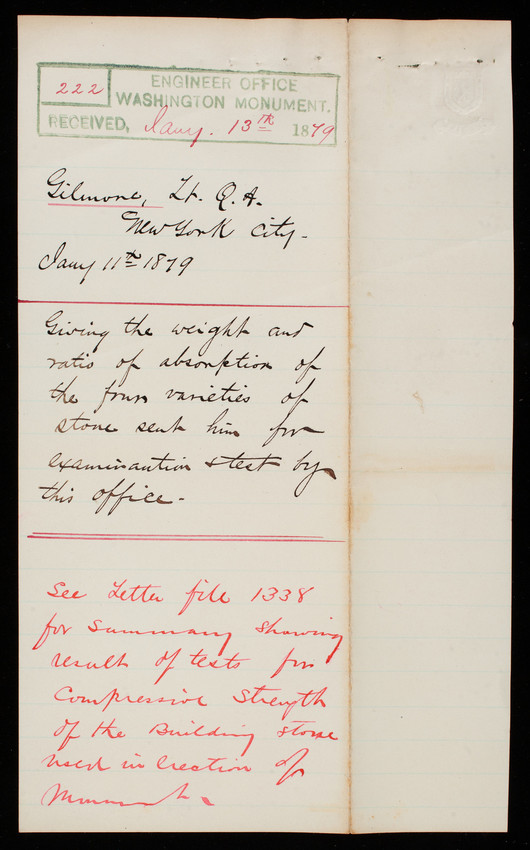 222
ENGINEER OFFICE
WASHINGTON MONUMENT.
RECEIVED, Jany. 13th 1879
Gilmore, Lt. Q. A.
New York City-
Jany 11th 1879
Giving the weight and
ratio of absorption of
the four varieties of
stone sent him for
examinaution & test by
this office-
See Letter file 1338
for Summary Showing
result of tests for
Compressive Strength
of the Building stone
used in Erection of
Monument.